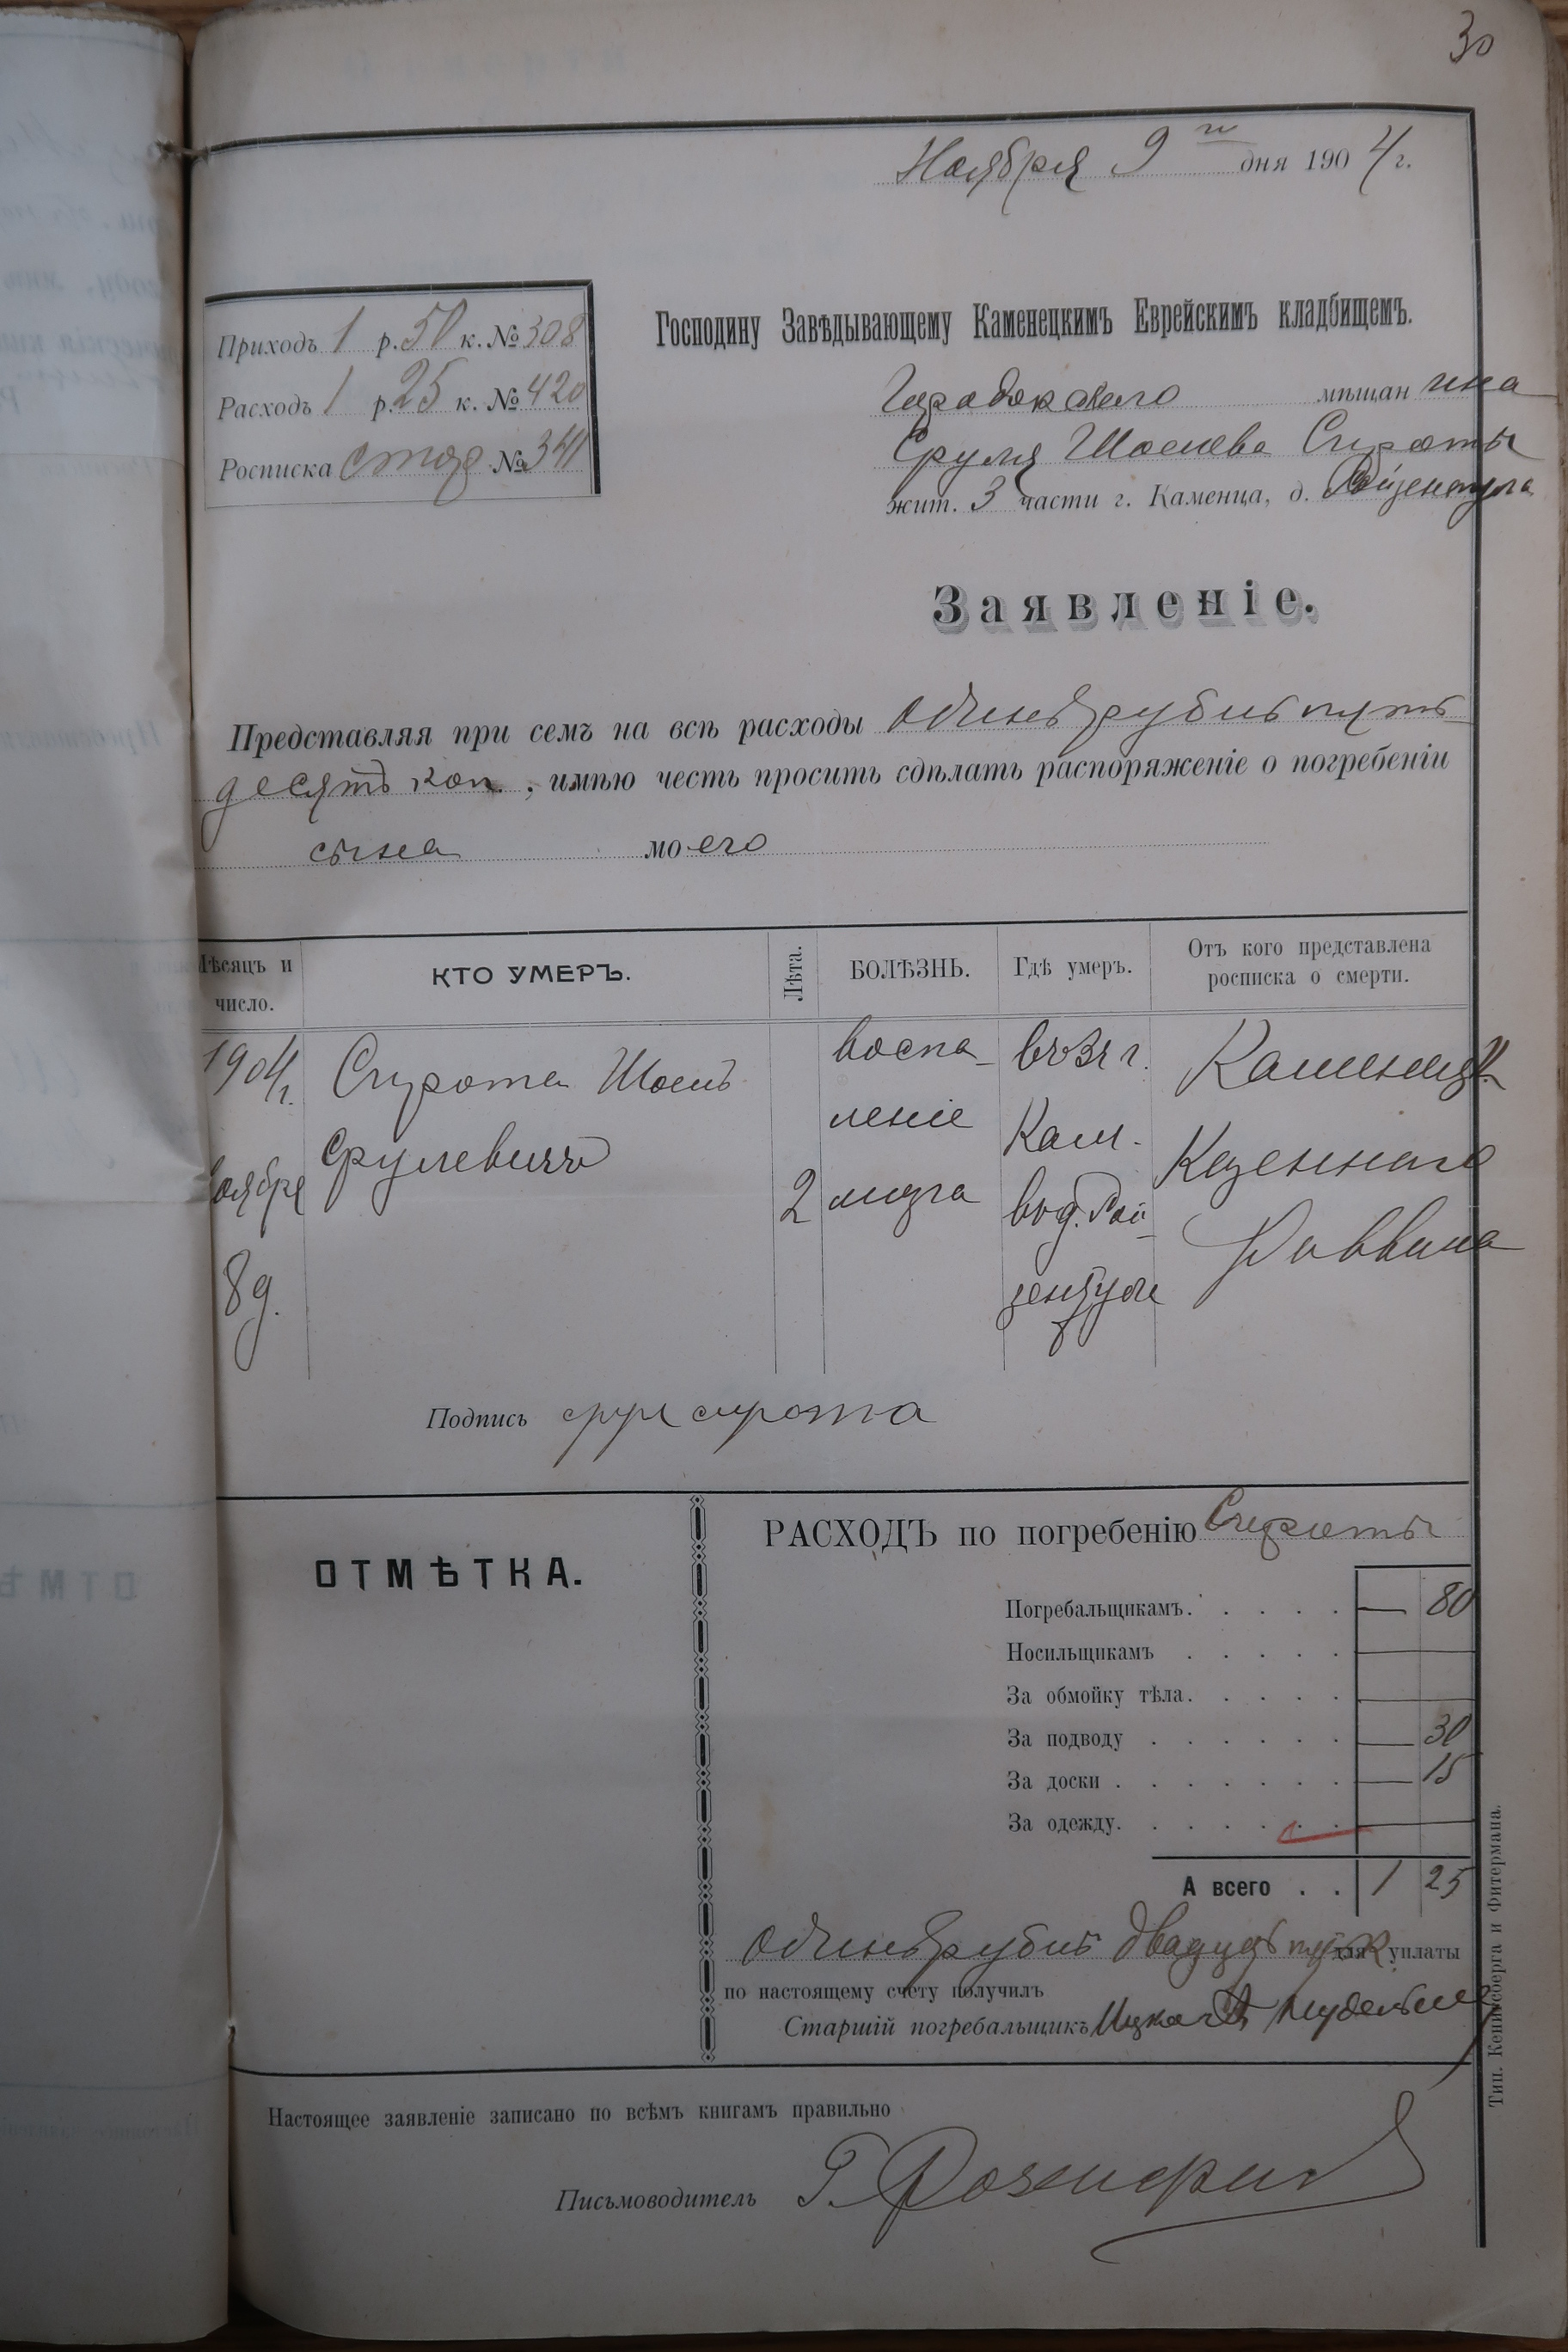 30
Ноября 9 го дня 1904 г.
Приходъ 1 р. 50 к. № 308
Расходъ 1 р. 25 к. № 420
Росписка № 341
Господину Завѣдывающему Каменецкимъ Еврейскимъ кладбищемъ.
Городокского мѣщанина
Сруля Шоелева Сироты
жит. 3 части г. Каменца, д.
Заявленіе.
Представляя при семъ на всѣ расходы одинъ рубль пять
десятъ коп., имѣю честь просить сдѣлать распоряженіе о погребеніи
сына моего
Мѣсяцъ и число.
КТО УМЕРЪ.
Лѣта.
БОЛѢЗНЬ.
Гдѣ умеръ.
Отъ кого представлена росписка о смерти.
1904 г.
Ноября
8 д.
Сирота Шоель
Срулевичъ
2
воспа-
леніе
мозга
въ 3 ч г.
Кам.
въ д. Рой-
Каменецк.
Казеннаго
Раввина
Подпись срул сирота
ОТМѢТКА.
РАСХОДЪ по погребенію Сироты
Погребальщикамъ. — 80
Носильщикамъ —
За обмойку тѣла. —
За подводу — 30
За доски — 15
За одежду. —
А всего 1 25
одинъ рубль двадцать пять к для уплаты
по настоящему счету получилъ
Старшій погребальщикъ
Настоящее заявленіе записано по всѣмъ книгамъ правильно
Письмоводитель Г.
Тип. Кенигсберга и Фитермана.